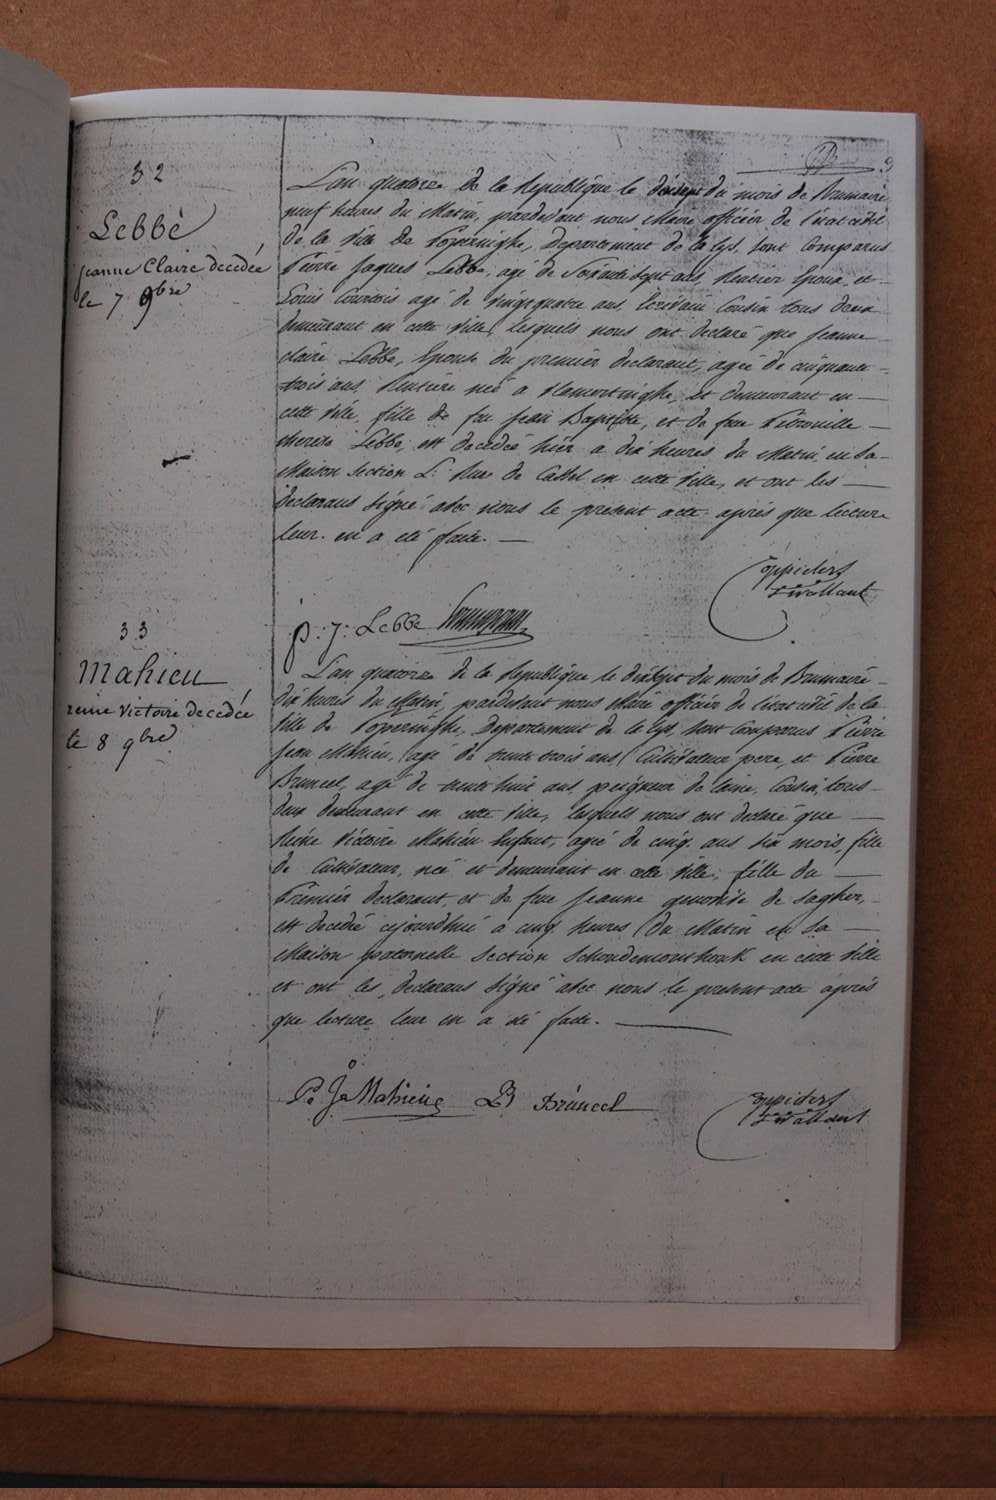 9
32
Lebbé
Jeanne Claire decedée
le 7. 9bre
L'an quatorze de la Republique le dixsept du mois de Brumaire
neuf heures du Matin, pardevant nous Maire officier de l'état civil
de la Ville de Poperinghe, Departement de la Lys, sont comparus
Pierre Jaques Lebbe, agé de Soixante sept ans, Rentier Epoux, et
Louis Courtois agé de vingt quatre ans, Ecrivain Cousin tous deux
demeurant en cette Ville, lesquels nous ont declaré que Jeanne
claire Lebbe, Epouse du premier declarant, agée de cinquante
trois ans, Rentiere née a Vlamertinghe, et demeurant en
cette Ville, fille de feu Jean Baptiste, et de feue Petronille
therese Lebbe, est decedée hier a dix heures du Matin, en sa
Maison Section L. Rue de Cassel en cette Ville, et ont les
declarans signé avec nous le present acte après que lecture
leur en a été faite.
P: J: Lebbe
33
Mahieu
reine Victoire decedée
le 8 9bre
L'an quatorze de la Republique le dixsept du mois de Brumaire
dix heures du Matin, pardevant nous Maire officier de l'état civil de la
Ville de Poperinghe, Departement de la Lys, sont comparus Pierre
Jean Mahieu, agé de trente trois ans, Cultivateur pere, et Pierre
Bruneel, agé de trente huit ans, peigneur de laine, Cousin, tous
deux demeurant en cette Ville, lesquels nous ont declaré que
Reine Victoire Mahieu Enfant, agée de cinq ans six mois, fille
de Cultivateur, née et demeurant en cette Ville, fille du
Premier declarant, et de feue Jeanne de Sagher,
est decedée cejourdhui a cinq heures du Matin en sa
Maison paternelle Section Schoudemonthouk en cette Ville
et ont les declarans signé avec nous le present acte après
que lecture leur en a été faite.
Pe Je Mahieu PB Brúneel